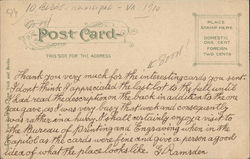 Va 1910
Post Card
PLACE
STAMP HERE
DOMESTIC
ONE CENT
FOREIGN
TWO CENTS
THIS SIDE FOR THE ADDRESS
Thank you very much for the interesting cards you sent.
I don't think I appreciated the last lot to the full until
I had read the description on the back in addition to the one
you gave as I was very busy that week and consequently
was rather in a hurry. I shall certainly enjoy a visit to
the Bureau of Printing and Engraving when in the
Capitol as the cards were fine and give a person a good
idea of what the place looks like. G Ramsden